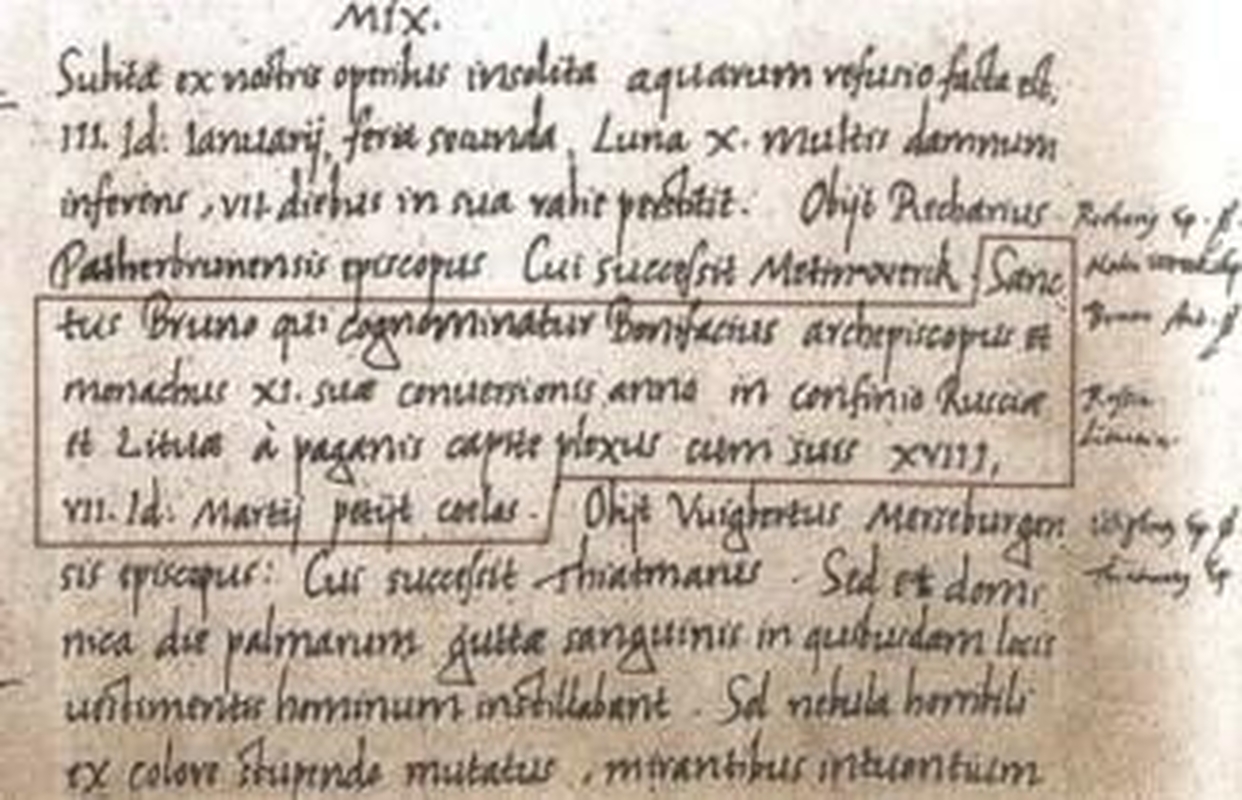 MIX.
Subita ex nostris operibus insolita aquarum refusio facta est,
III. Id. Ianuarij, feria secunda, Luna X. multis damnum
inferens, VII. diebus in sua rabie perstitit. Obijt Recharius
Patherbrunensis episcopus Cui successit Meinwerck Sanc
tus Bruno qui cognominatur Bonifacius archepiscopus et
monachus XI. suæ conuersionis anno in confinio Rusciæ
et Lituæ à paganis capite plexus cum suis XVIII,
VII. Id: Martij petijt coelos. Obijt Vuigbertus Merseburgen
sis episcopus: Cui successit Thiatmarus. Sed et domi
nica die palmarum guttæ sanguinis in quibusdam locis
uestimentis hominum instillabant. Sol nebula horribili
ex colore stupendo mutatus, mirantibus intuentium